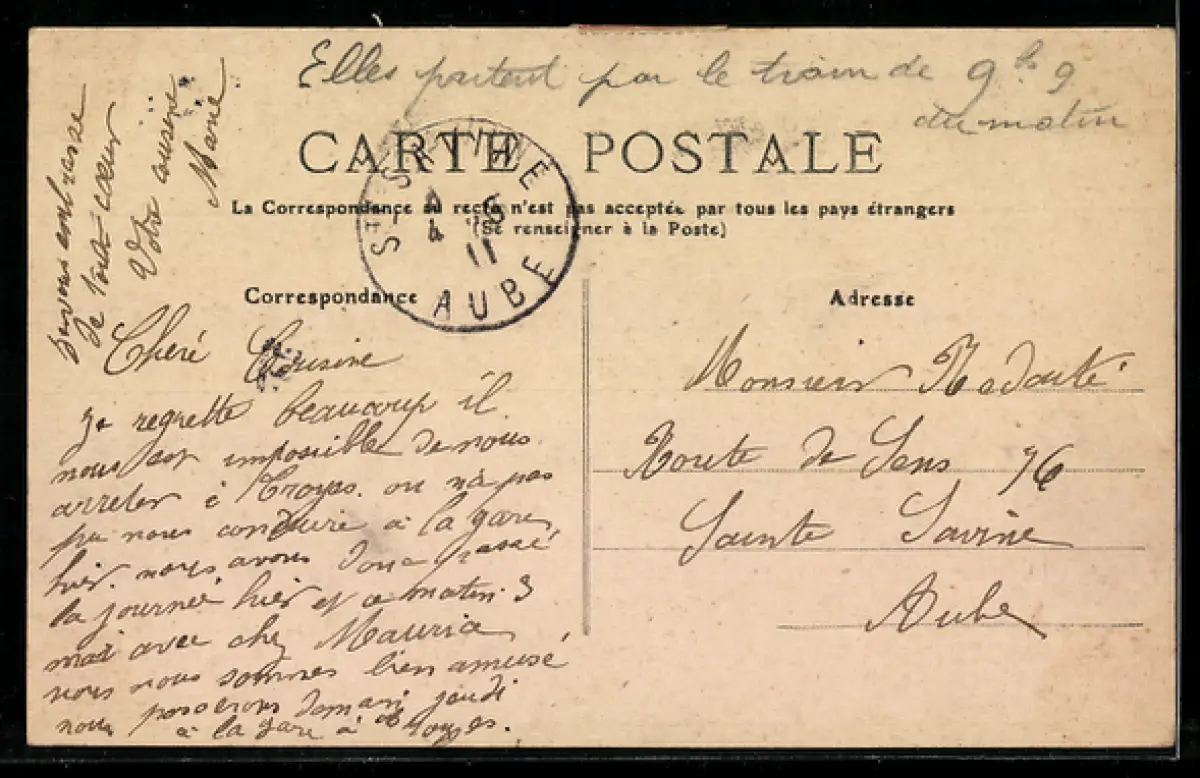 Elles partent par le train de 9 h 9
du matin
CARTE POSTALE
La Correspondance au recto n'est pas acceptée par tous les pays étrangers
(Se renseigner à la Poste)
STE-SAVINE
4 11
AUBE
Correspondance
Chere Cousine
Je regrette beaucoup il
nous est impossible de nous
arreter à Troyes. on n'a pas
pu nous conduire à la gare
hier. nous avons donc passé
la journée hier et ce matin. 3
mai avec chez Maurice
nous nous sommes bien amusé
nous passerons demain jeudi
à la gare à Troyes.
embrasse
de tout cœur
Votre cousine
Marie
Adresse
Monsieur
Route de Sens 76
Sainte Savine
Aube